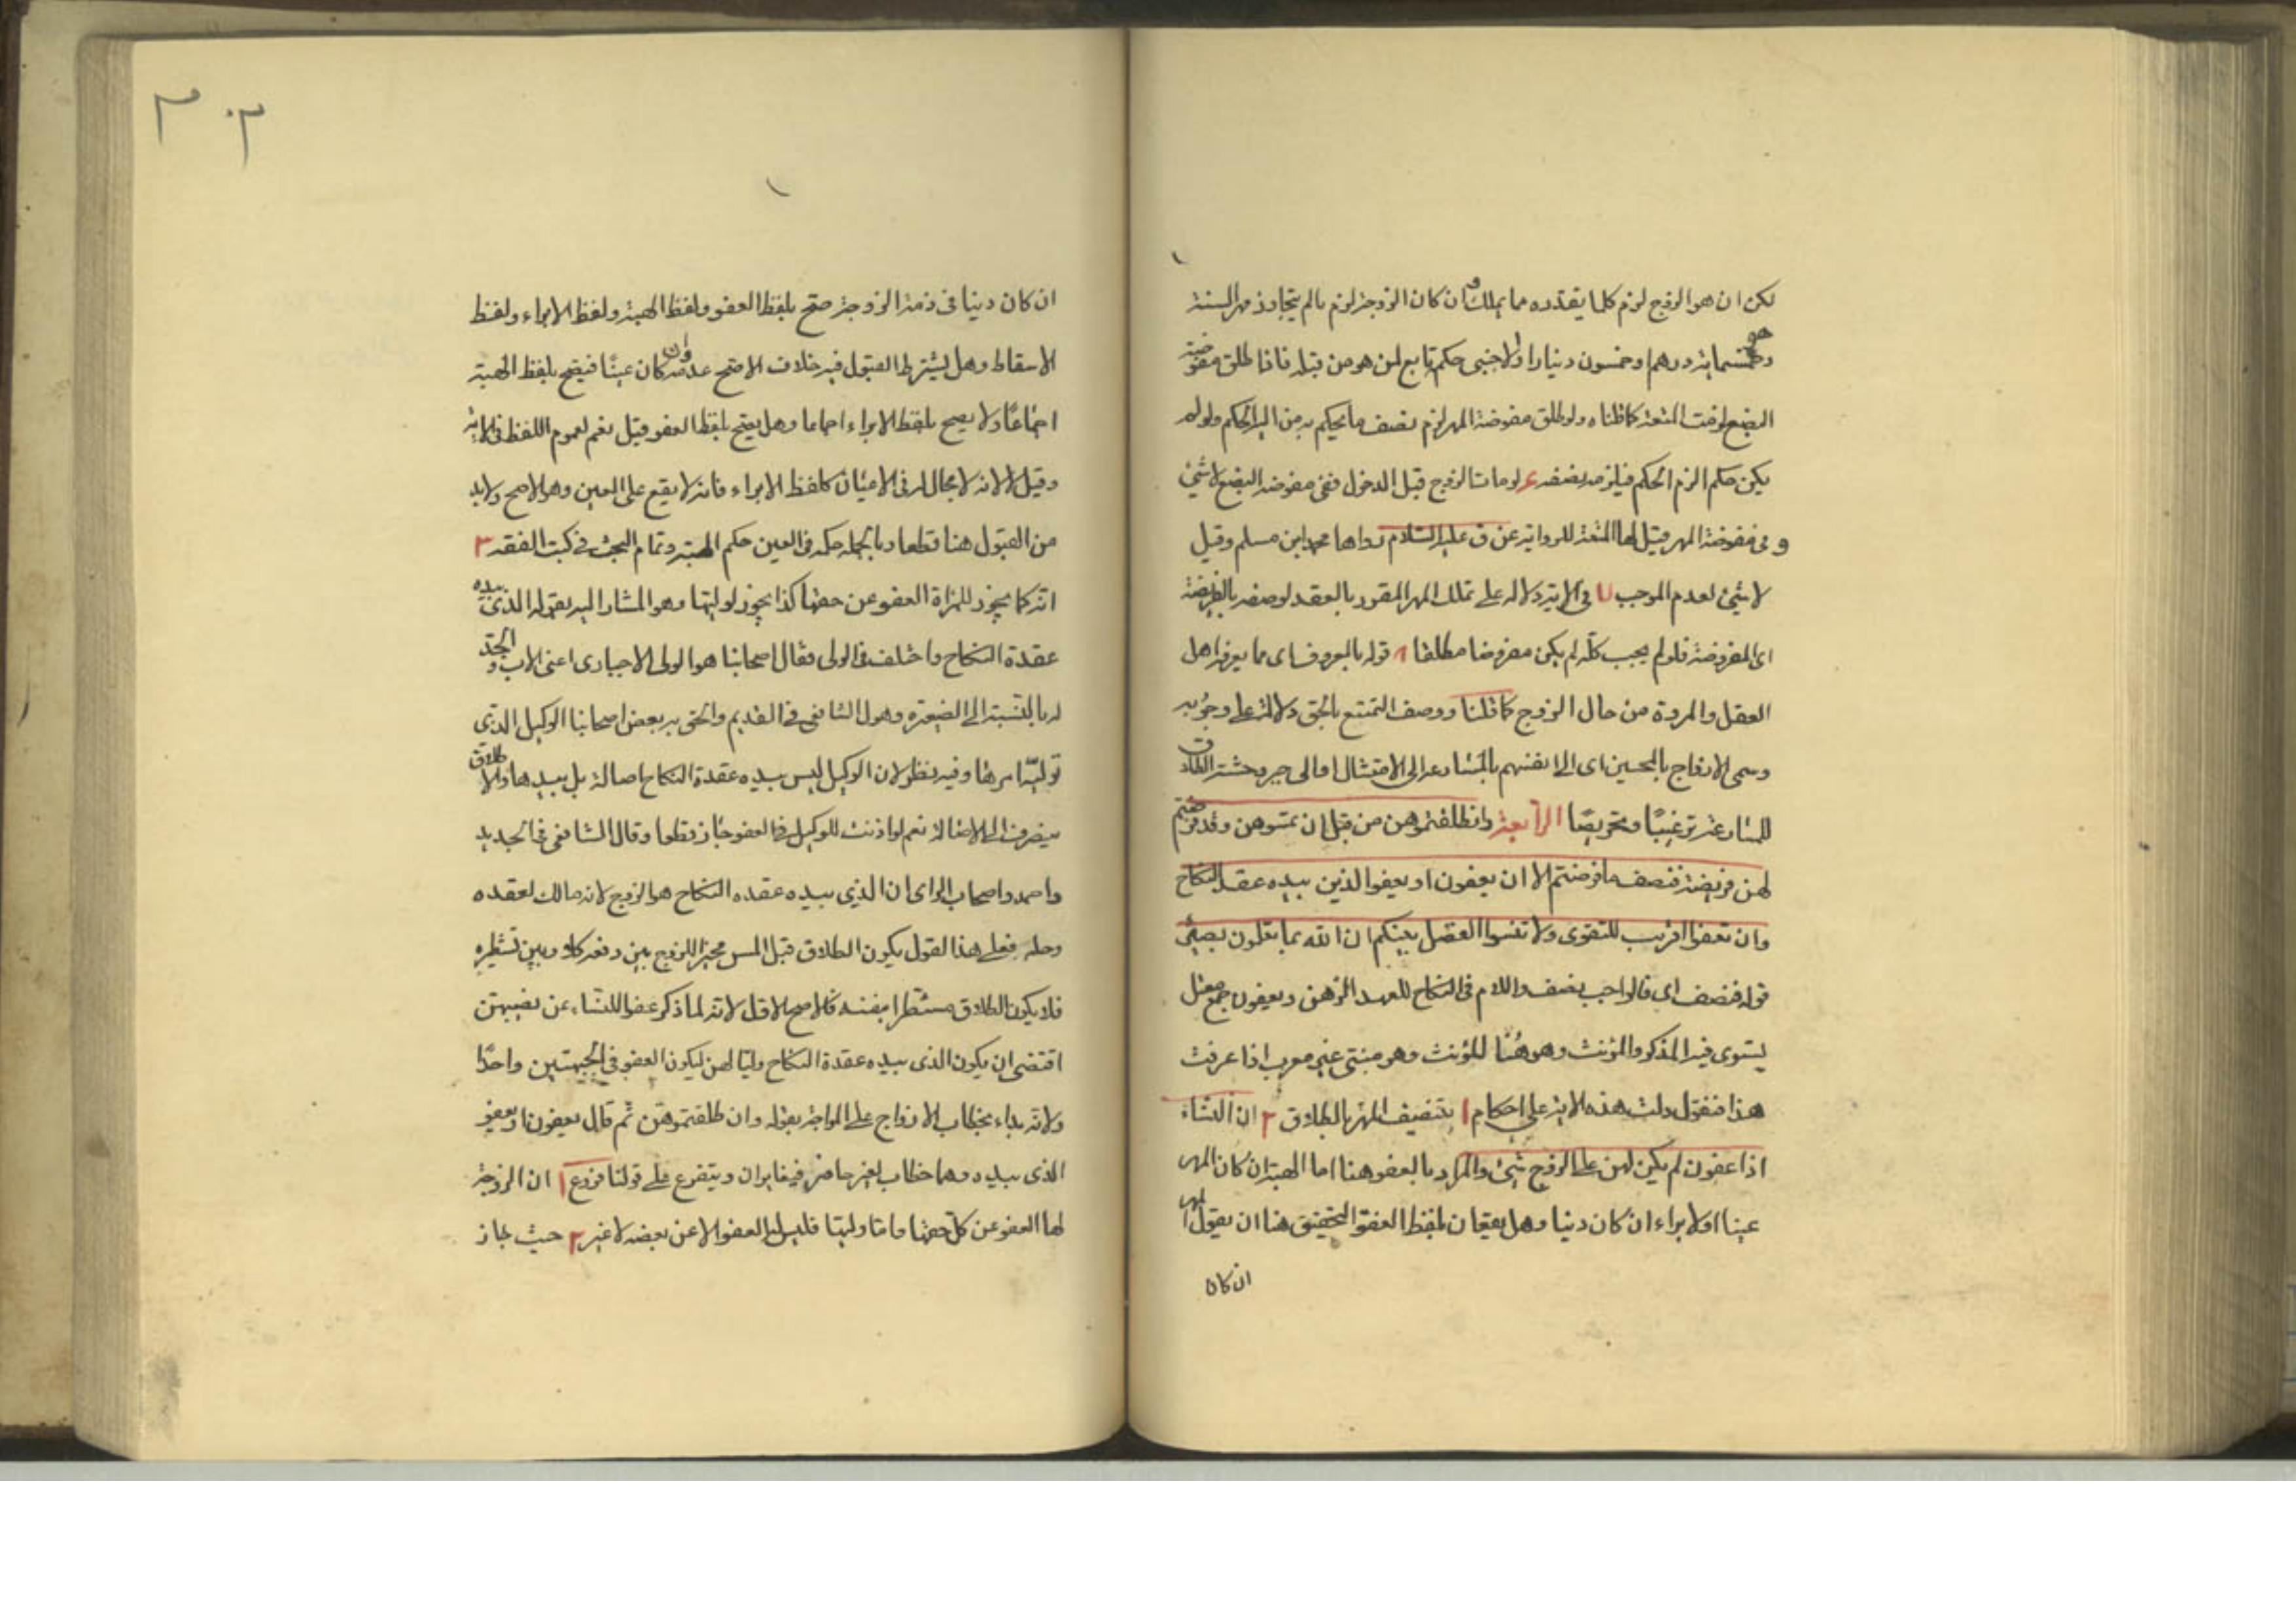 لكن ان هو الزوج لزم كلما يقدره مما يملك وان كان الزوجة لزم ما لم يتجاوز مهر السنة
وهو خمسماية درهم او خمسون دينارا ولاجنبى حكم تابع لمن هو من قبله فاذا طلق مفوضة
البضع لزمت المتعة كما قلناه ولو طلق مفوضة المهر لزم نصف ما يحكم به من اليه الحكم ولو لم
يكن حكم الزم الحكم فيلزمه نصفه ع لو مات الزوج قبل الدخول ففى مفوضة البضع لا شئ
و فى مفوضة المهر قيل لها المتعة للرواية عن ق عليه السلام رواها محمد ابن مسلم وقيل
لا شئ لعدم الموجب فى الاية دلالة على تملك المهر المقرر بالعقد لوصفه بالفريضة
اى المفروضة فلو لم يجب كله لم يكن مفروضا مطلقا قوله بالمعروف اى مما يعرفه اهل
العقل والمروة من حال الزوج كما قلنا ووصف التمتع بالحق دلالة على وجوبه
وسمى الازواج بالمحسين اى الى انفسهم بالمسارعة الى الامتثال او الى جبر وحشة الطلاق
للمسارعة ترغيبًا وتحريصًا الرابعة وان طلقتموهن من قبل ان تمسوهن وقد فرضتم
لهن فريضة فنصف ما فرضتم الا ان يعفون او يعفوا الذين بيده عقدة النكاح
وان تعفوا اقرب للتقوى ولا تنسوا الفضل بينكم ان الله بما تعلون بصير
قوله فنصف اى فالواجب نصف واللام فى النكاح للعهد الذهن ويعفون جمع فعل
يستوى فيه المذكر والمؤنث وهو هُنا للمؤنث وهو مبنى غير معرب اذا عرفت
هذا فنقول دلت هذه الاية على احكام ١ تنصيف المهر بالطلاق ٢ ان النساء
اذا عفون لم يكن لهن على الزوج شئ والمراد بالعفو هنا اما الهبة ان كان المهر
عينا او الابراء ان كان دينا وهل يقعان بلفظ العفو التحقيق هنا ان يقول المهر
ان كان
٣٠٣
ان كان دينا فى ذمة الزوجة صح بلفظ العفو ولفظ الهبة ولفظ الابراء ولفظ
الاسقاط وهل يشترط القبول فيه خلاف الاصح عدمه وان كان عينًا فيصح بلفظ الهبة
اجماعًا ولا يصح بلفظ الابراء اجماعا وهل يصح بلفظ العفو قيل نعم لعموم اللفظ فى الاية
وقيل لا لانه لا مجال له فى الاعيان كلفظ الابراء فانه لا يقع على العين وهو الاصح ولابد
من القبول هنا قطعا وبالجملة حكمه فى العين حكم الهبة وتمام البحث فى كتب الفقه ٣
انه كما يجوز للمراة العفو عن حقها كذا يجوز لوليها وهو المشار اليه بقوله الذى بيده
عقدة النكاح واختلف فى الولى فقال اصحابنا هو الولى الاجبارى اعنى الاب والجد
له بالنسبة الى الصغيرة وهول الشافعى فى القديم والحق به بعض اصحابنا الوكيل الذى
توليه امرها وفيه نظر لان الوكيل ليس بيده عقدة النكاح اصالة بل بيدها والاطلاق
ينصرف الى الاصالة نعم لو اذنت للوكيل فى العفو جاز قطعا وقال الشافعى فى الجديد
واحمد واصحاب الراى ان الذي بيده عقده النكاح هو الزوج لانه مالك لعقده
وحله فعلى هذا القول يكون الطلاق قبل المس مخيرا للزوج بين دفعه كلا وبين تشطيره
فلا يكون الطلاق مشطرا بنفسه فالاصح الاول لانه لما ذكر عفو النساء عن نصيبهن
اقتضى ان يكون الذى بيده عقدة النكاح وليا لهن ليكون العفو فى الجهتين واحدًا
ولانه بداء بخطاب الازواج على المواجهة بقوله وان طلقتموهن ثم قال يعفون او يعفو
الذى بيده وهما خطاب لغير حاضر فيغايران ويتفرع على قولنا فروع ١ ان الزوجة
لها العفو عن كل حقها واما وليها فليس له العفو الا عن بعضه لا غير ٢ حيث جاز